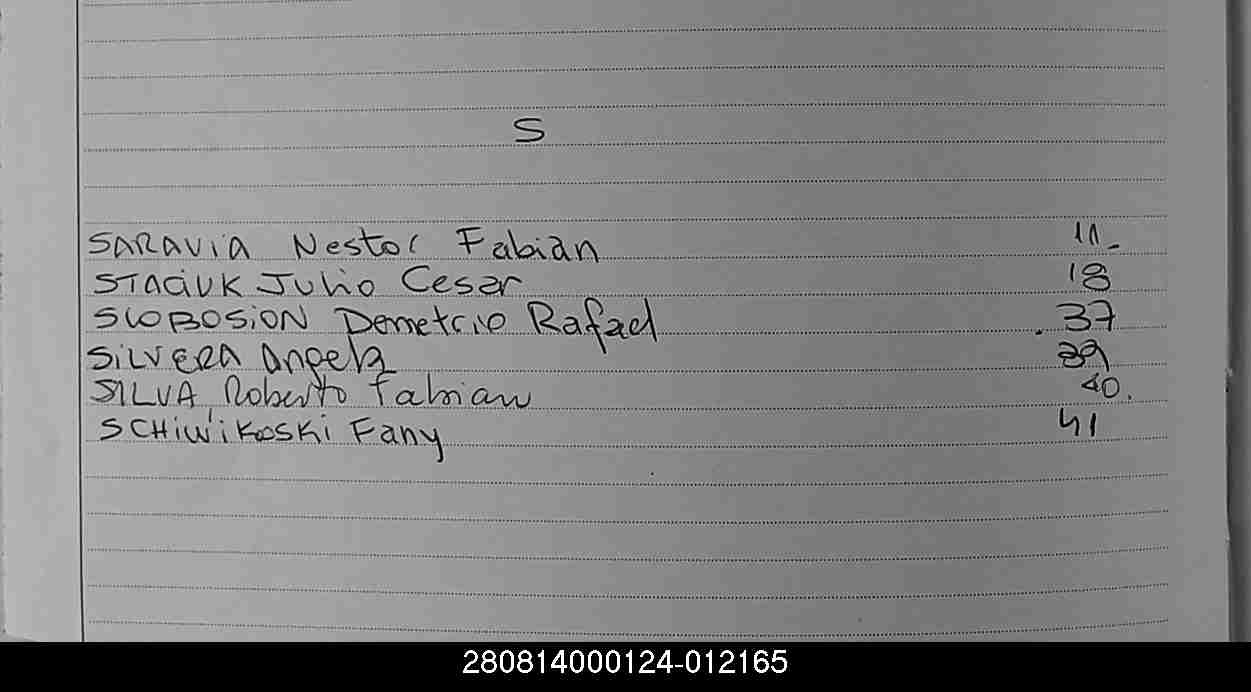 S
SARAVIA Nestor Fabian 11-
STACIUK Julio Cesar 18
SLOBOSION Demetrio Rafael 37
SILVERA Angela 39
SILVA Roberto Fabian 40.
SCHIWIKOSKI Fany 41
280814000124-012165